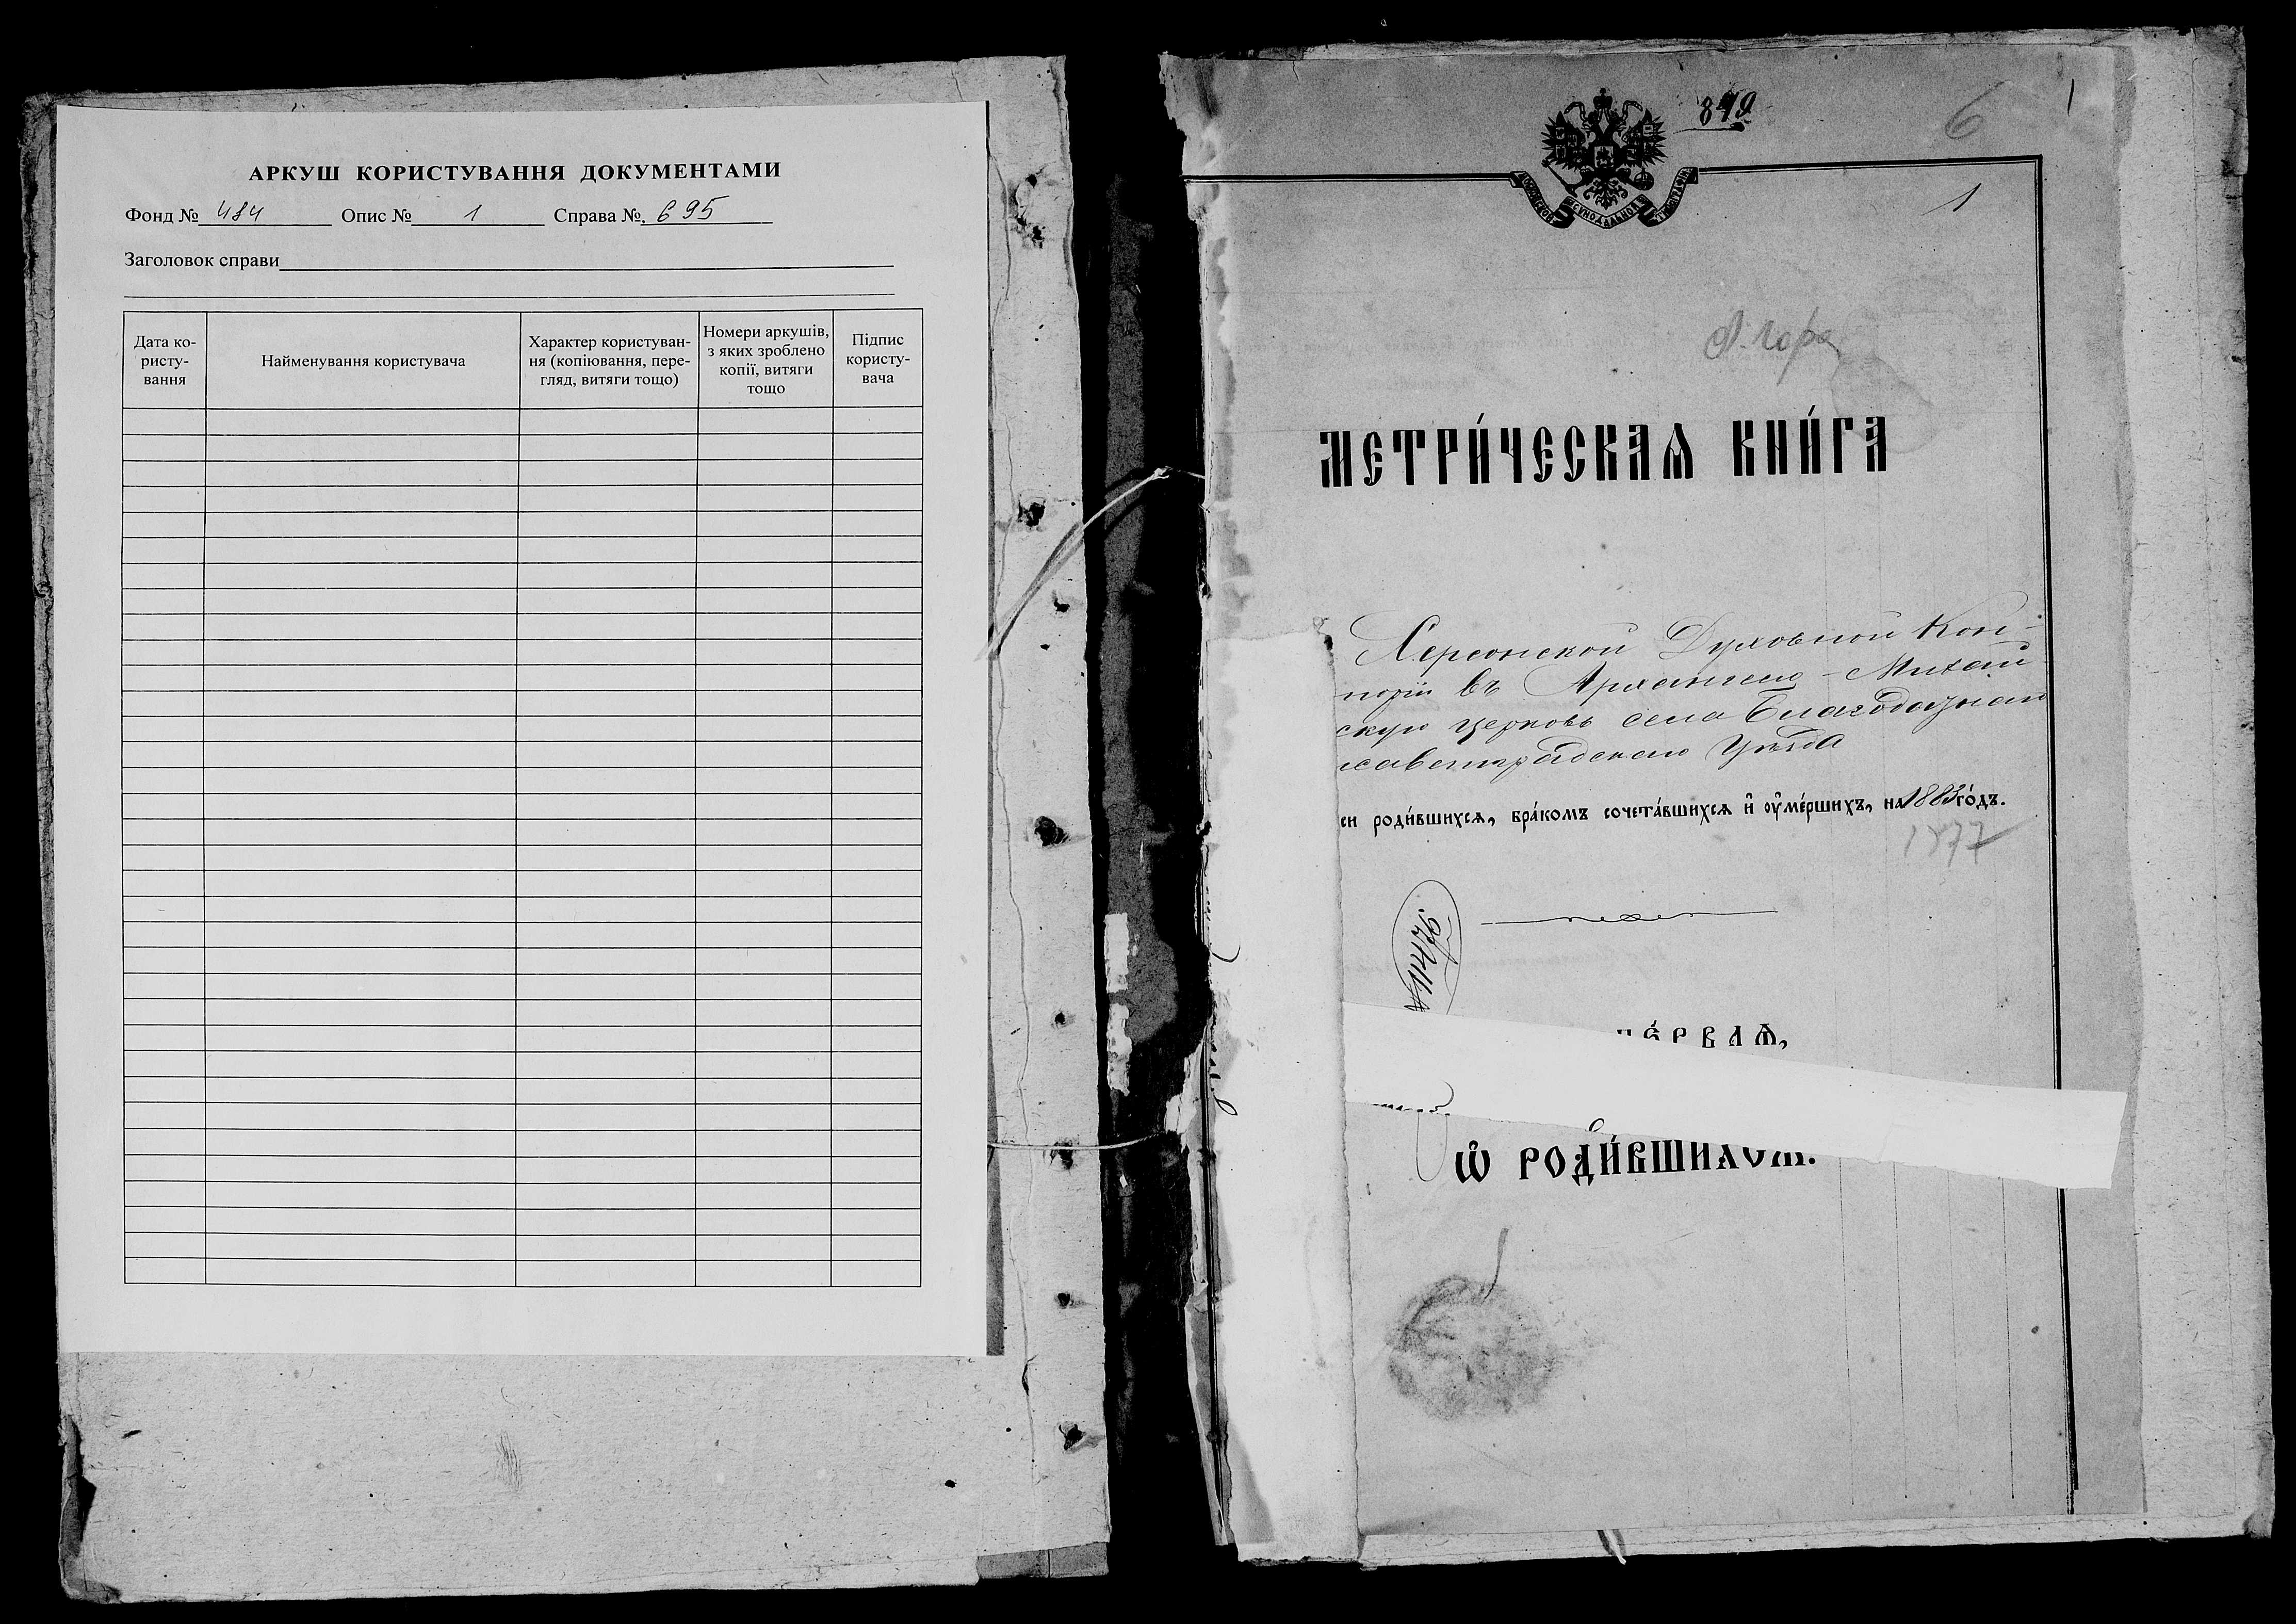 АРКУШ КОРИСТУВАННЯ ДОКУМЕНТАМИ
Фонд № 484 Опис № 1 Справа № 695
Заголовок справи
Дата ко-
ристу-
вання
Найменування користувача
Характер користуван-
ня (копіювання, пере-
гляд, витяги тощо)
Номери аркушів,
з яких зроблено
копії, витяги
тощо
Підпис
користу-
вача
849
6
1
1
МОСКОВСКОЙ СѴНОДАЛЬНОЙ ТИПОГРАФІИ
МЕТРИ́ЧЕСКАѦ КНИ́ГА
Херсонской Духовной Кон-
торіи въ Архангело-Михай
скую церковь села Благодатнаго
исаветградскаго Уѣзда
си роди́вшихсѧ, бра́комъ сочета́вшихсѧ и҆ оу҆ме́ршихъ, на 1883 го́дъ.
1877
ПЕ́РВАѦ,
Ѡ҆ РОДИ́ВШИХСѦ.